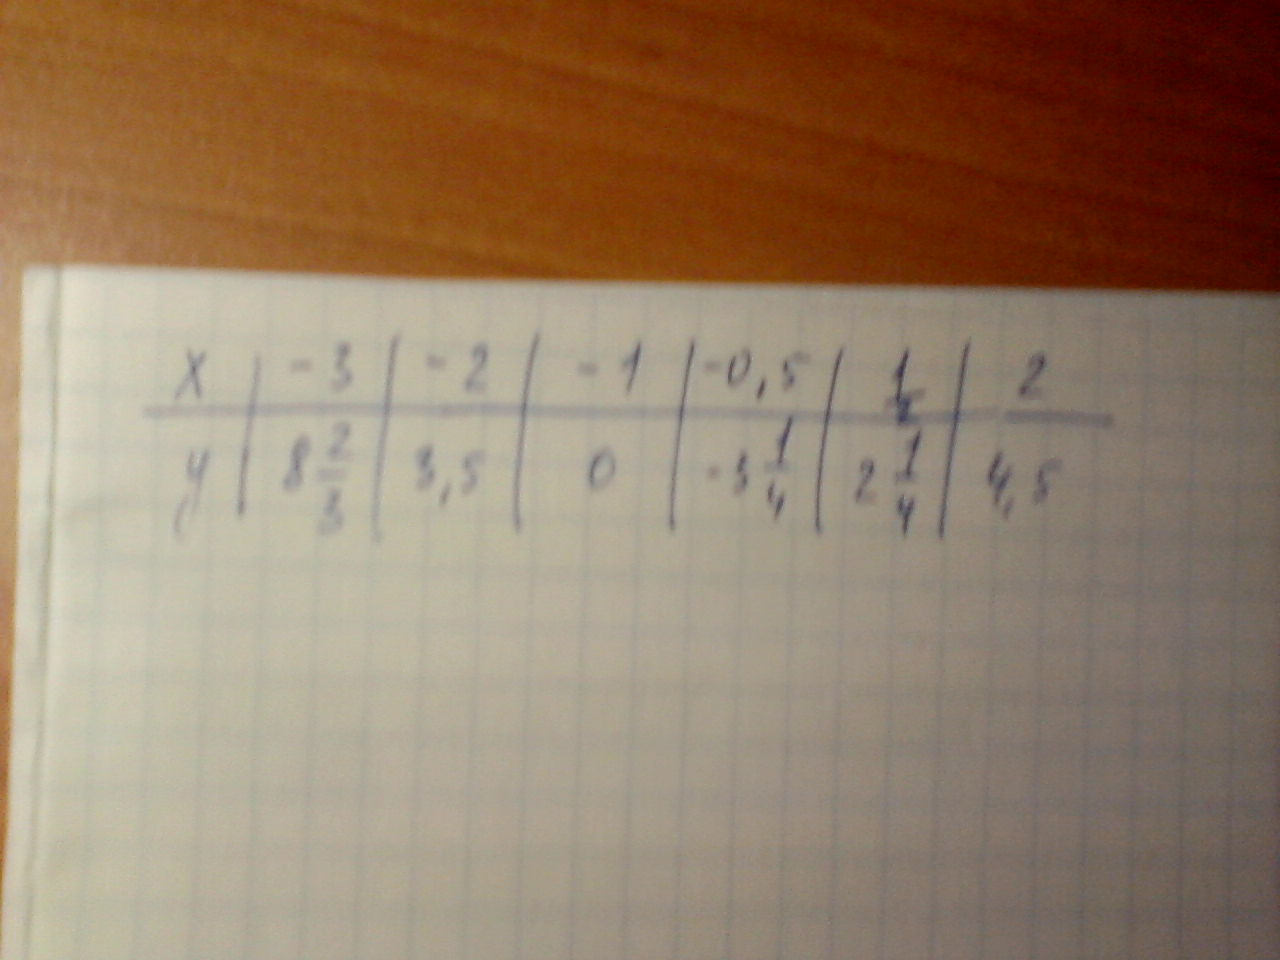 x | -3 | -2 | -1 | -0,5 | 1/2 | 2
y | 8 2/3 | 3,5 | 0 | -3 1/4 | 2 1/4 | 4,5